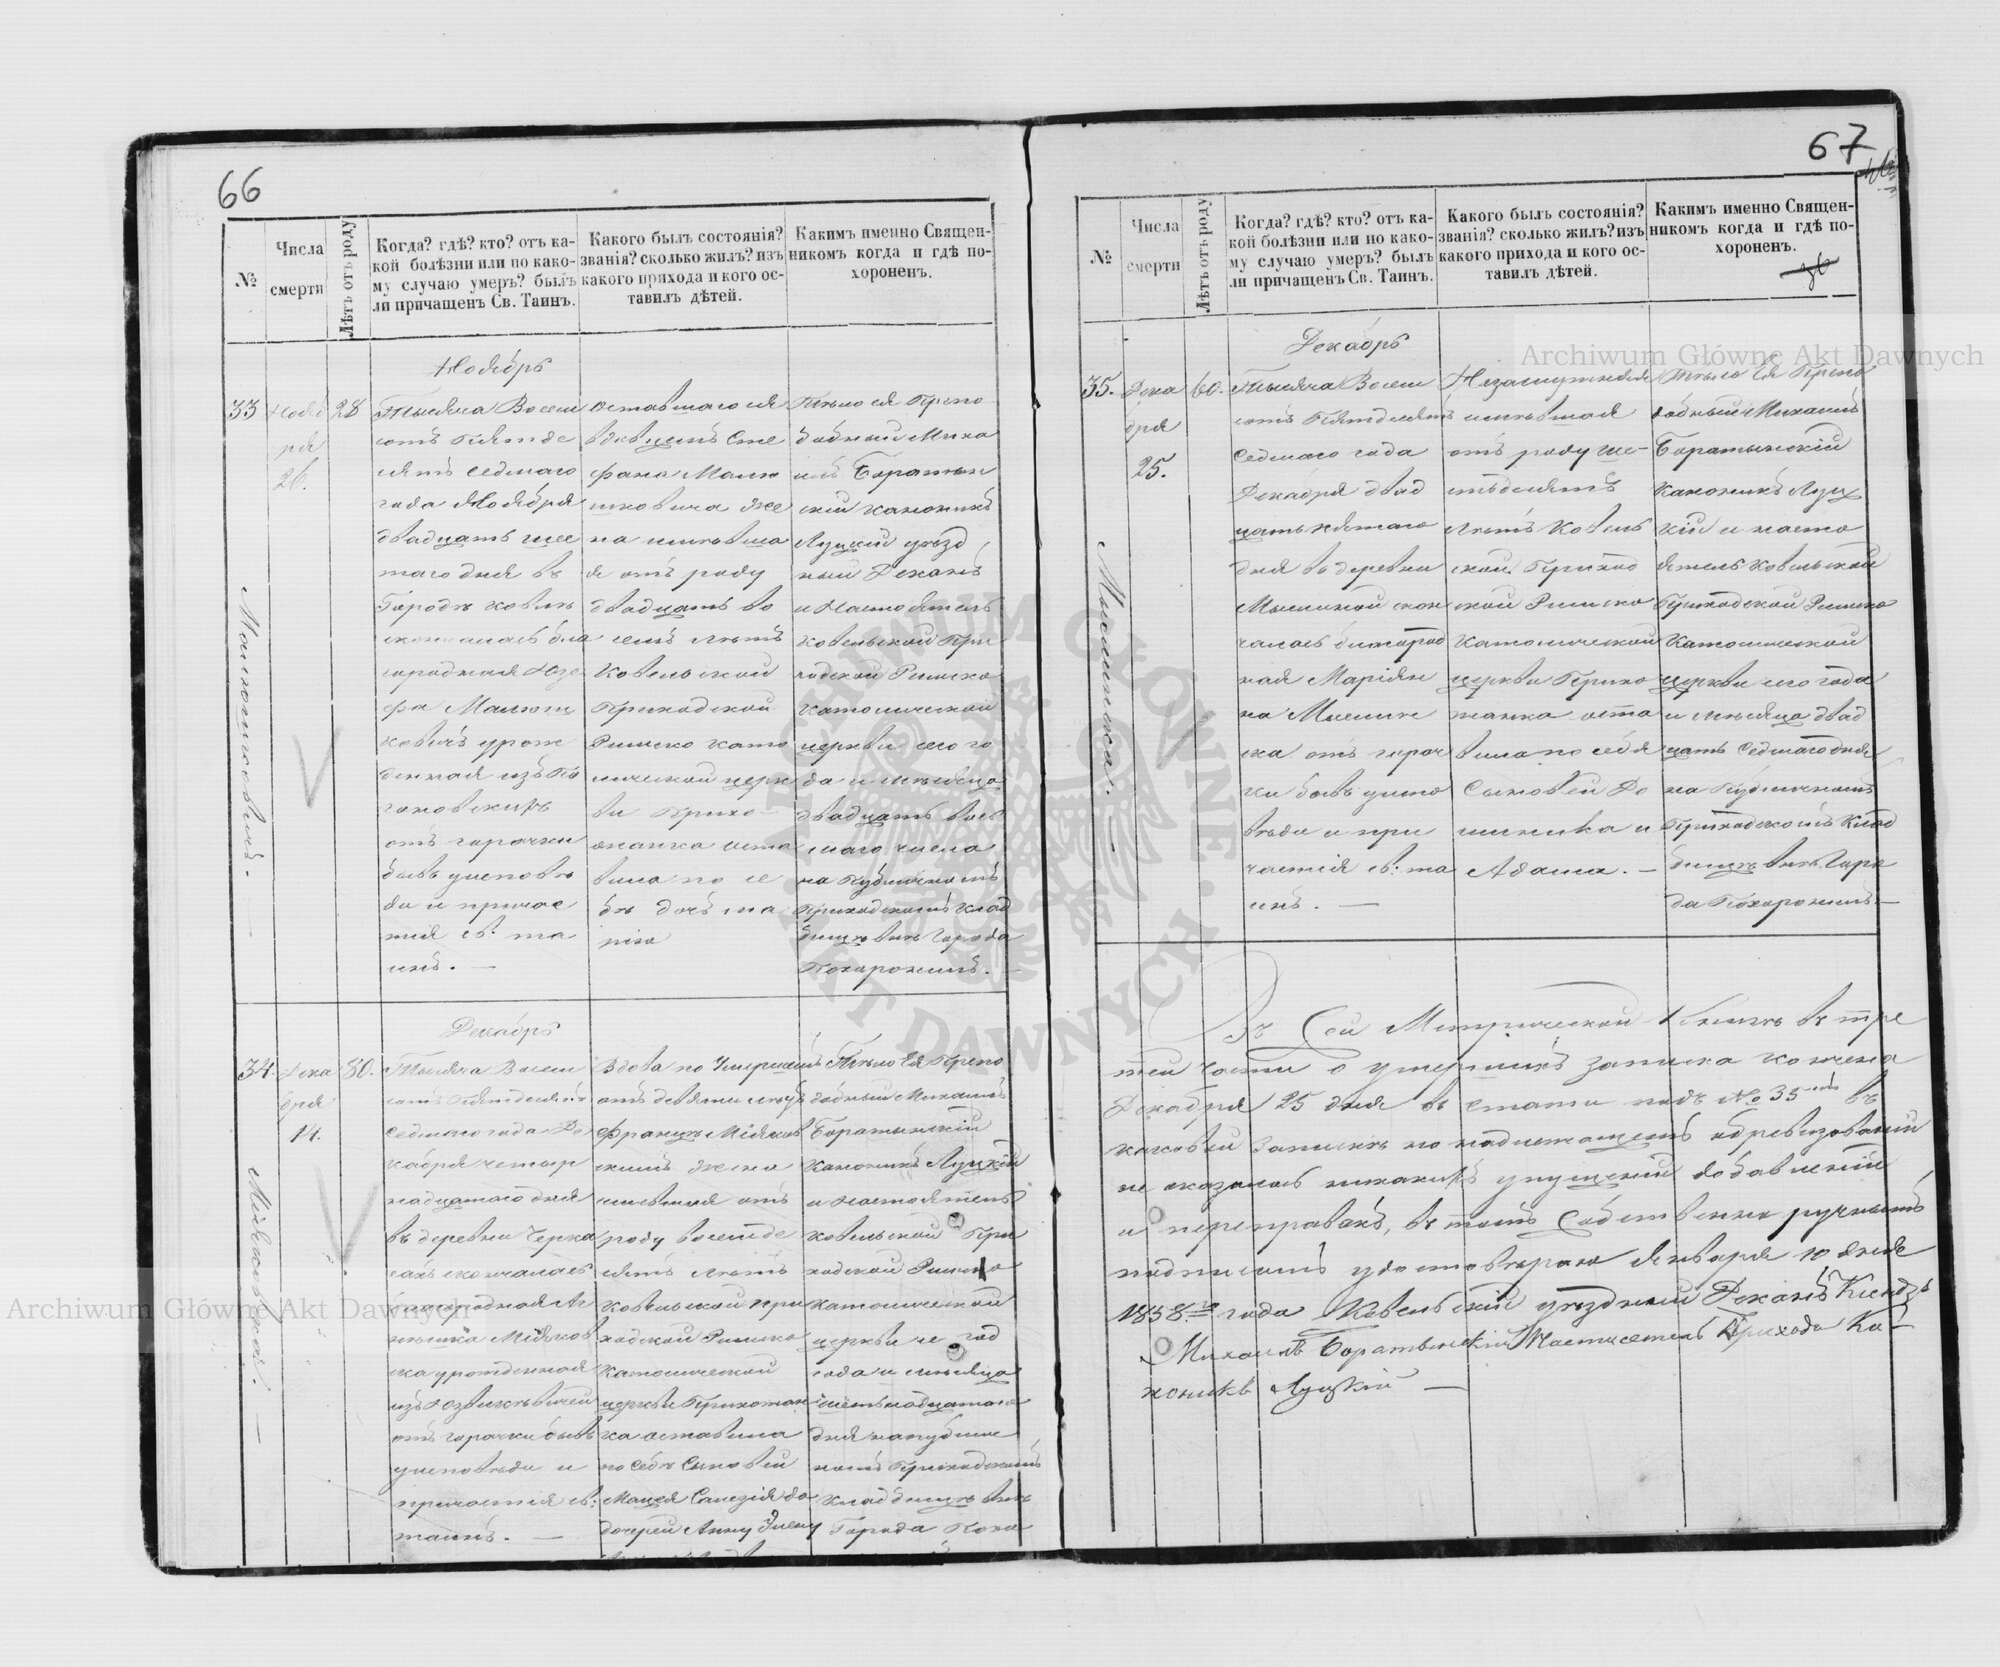 66
№
Числа
смерти
Лѣтъ отъ роду
Когда? гдѣ? кто? отъ ка-
кой болѣзни или по како-
му случаю умеръ? былъ
ли причащенъ Св. Таинъ.
Какого былъ состоянія?
званія? сколько жилъ? изъ
какого прихода и кого ос-
тавилъ дѣтей.
Какимъ именно Священ-
никомъ когда и гдѣ по-
хороненъ.
Ноябрь
33
Нояб
ря
26.
28
Тысяча Восем
сотъ Пятьде
сятъ седмаго
года Ноября
двадцать шес
таго дня въ
Городѣ Ковлѣ
скончалась бла
городная Юзе
фа Малюш
ковичъ урож
денная изъ
отъ горячки
бывъ исповѣ
да и причас
тія св. та
инъ. —
оставшагося
вдовцемъ Сте
фана Малю
шковича же
на имѣвша
я отъ роду
двадцать во
семь лѣтъ
Ковельской
Приходской
Римско като
лической церк
ви Прихо-
жанка оста
вила по се
бѣ дочь Ма
рію
Тѣло ея Препо
добный Миха
илъ Боратын
скій каноникъ
Луцкій уѣзд
ный Деканъ
и Настоятель
Ковельской При
ходской Римско
католической
церкви сего го
да и мѣсяца
двадцать вось
маго числа
на Публичномъ
Приходскомъ клад
бищѣ внѣ Города
Похоронилъ. —
Декабрь
34.
Дека
бря
14.
80.
Тысяча Восем
сотъ Пятдесятъ
Седмаго года Де
кабря четыр
надцатаго дня
въ деревни Черка
сахъ скончалась
благородная Аг
нѣшка
ска урожденная
отъ горячки бывъ
исповѣди и
причастія св:
таинъ. —
Вдова по Умершемъ
отъ девяти лѣтъ
Францѣ
скимъ жена
имѣвшая отъ
роду восемде
сятъ лѣтъ
Ковельской При
ходской Римско
Католической
церкви Прихожан
ка оставила
по себѣ Сыновей
дочерей Анну
Тѣло Ея Препо
добный Михаилъ
Боратынскій
Каноникъ Луцкій
и Настоятель
Ковельской При
ходской Римско
католической
церкви
года и мѣсяца
дня на публич
номъ Приходскомъ
кладбищѣ внѣ
Города Похо
67
№
Числа
смерти
Лѣтъ отъ роду
Когда? гдѣ? кто? отъ ка-
кой болѣзни или по како-
му случаю умеръ? былъ
ли причащенъ Св. Таинъ.
Какого былъ состоянія?
званія? сколько жилъ? изъ
какого прихода и кого ос-
тавилъ дѣтей.
Какимъ именно Священ-
никомъ когда и гдѣ по-
хороненъ.
Декабрь
35.
Дека
бря
25.
60.
Тысяча Восем
сотъ Пятдесятъ
Седмаго года
Декабря двад
цать пятаго
дня въ деревни
скон
чалась благород
ная Маріян
на
ска отъ горяч
ки бывъ испо
вѣди и при
частія св: та
инъ. —
Незамужняя
имѣвшая
отъ роду ше-
стьдесятъ
лѣтъ Ковель
ской Приход
ской Римско
Католической
церкви Прихо
жанка оста
вила по себя
Сыновей До
миника и
Адама. —
Тѣло Ея Препо
добный Михаилъ
Боратынскій
Каноникъ Луц
кій и насто
ятель Ковельской
Приходской Римско
Католической
церкви сего года
и мѣсяца двад
цать Седмаго дня
на Публичномъ
Приходскомъ Клад
бищѣ внѣ Горо
да Похоронилъ. —
Въ Сей Метрической Книгѣ въ тре
тей части о умершихъ записка кончена
Декабря 25 дня въ статьи подъ № 35мъ въ
каковой Запискѣ по надлежащемъ обревизованій
не оказалось никакихъ упущеній добавленій
и переправокъ, въ томъ Собственно ручнымъ
подписомъ удостовѣряю Января 10 дня
1858го года Ковельскій уѣздный Деканъ Ксендзъ
Михаилъ Боратынскій Настоятель Прихода Ка-
ноникъ Луцкій —
Archiwum Główne Akt Dawnych
Archiwum Główne Akt Dawnych
ARCHIWUM GŁÓWNE
AKT DAWNYCH